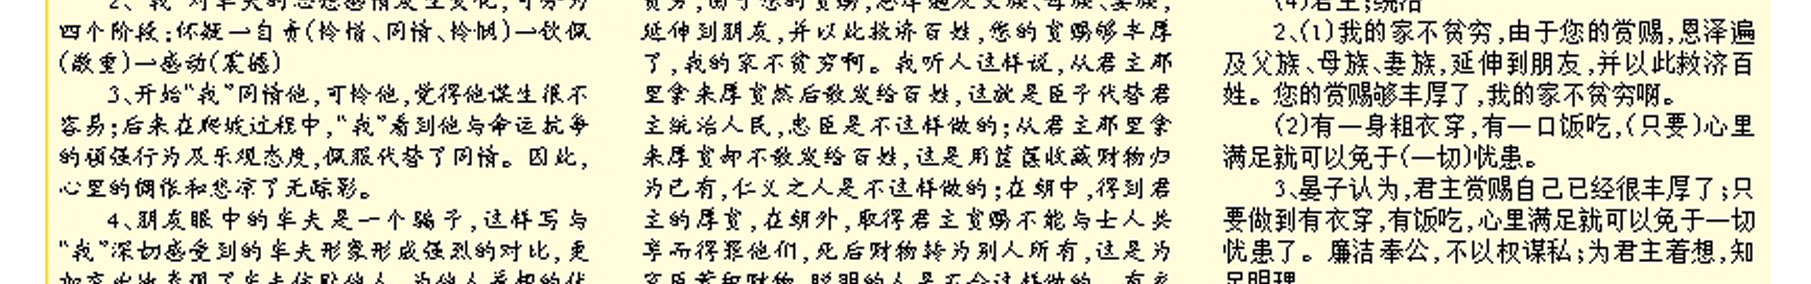 2、“我”对车夫的思想感情发生变化,可分为
四个阶段:怀疑→自责(怜惜、同情、怜悯)→钦佩
(敬重)→感动(震撼)
3、开始“我”同情他,可怜他,觉得他谋生很不
容易;后来在爬坡过程中,“我”看到他与命运抗争
的顽强行为及乐观态度,佩服代替了同情。因此,
心里的惆怅和悲凉了无踪影。
4、朋友眼中的车夫是一个骗子,这样写与
“我”深切感受到的车夫形象形成强烈的对比,更
延伸到朋友,并以此救济百姓,您的赏赐够丰厚
了,我的家不贫穷啊。我听人这样说,从君主那
里拿来厚赏然后散发给百姓,这就是臣子代替君
主统治人民,忠臣是不这样做的;从君主那里拿
来厚赏却不散发给百姓,这是用筐箧收藏财物归
为己有,仁义之人是不这样做的;在朝中,得到君
主的厚赏,在朝外,取得君主赏赐不能与士人共
享而得罪他们,死后财物转为别人所有,这是为
(4)君主;统治
2、(1)我的家不贫穷,由于您的赏赐,恩泽遍
及父族、母族、妻族,延伸到朋友,并以此救济百
姓。您的赏赐够丰厚了,我的家不贫穷啊。
(2)有一身粗衣穿,有一口饭吃,(只要)心里
满足就可以免于(一切)忧患。
3、晏子认为,君主赏赐自己已经很丰厚了;只
要做到有衣穿,有饭吃,心里满足就可以免于一切
忧患了。廉洁奉公,不以权谋私;为君主着想,知
足明理